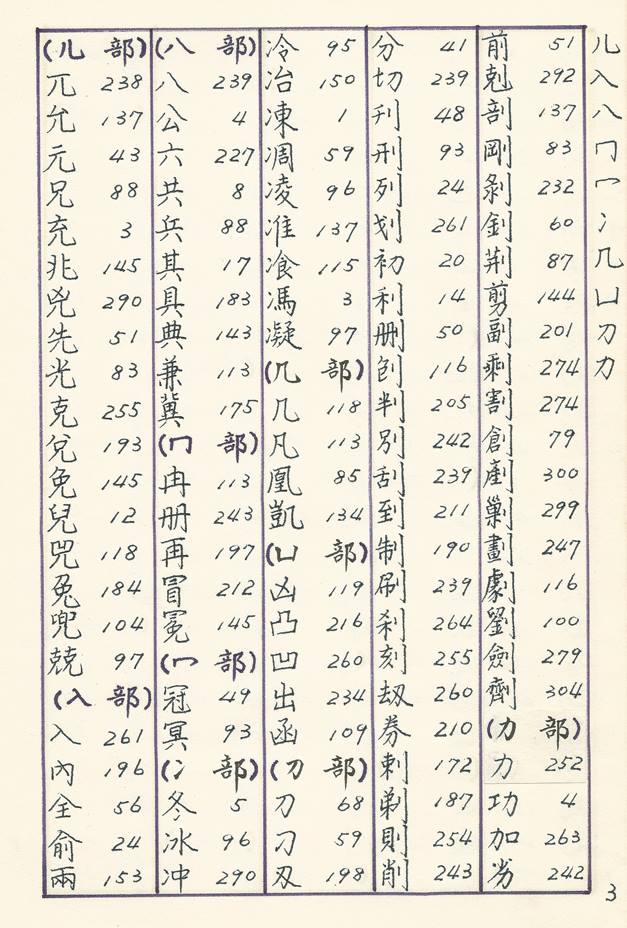 (儿 部)
兀 238
允 137
元 43
兄 88
充 3
兆 145
兇 290
先 51
光 83
克 255
兌 193
免 145
兒 12
兕 118
兔 184
兜 104
兢 97
(入 部)
入 261
內 196
全 56
俞 24
兩 153
(八 部)
八 239
公 4
六 227
共 8
兵 88
其 17
具 183
典 143
兼 113
冀 175
(冂 部)
冉 113
册 243
再 197
冒 212
冕 145
(冖 部)
冠 49
冥 93
(冫 部)
冬 5
冰 96
冲 290
冷 95
冶 150
凍 1
凋 59
凌 96
准 137
飡 115
馮 3
凝 97
(几 部)
几 118
凡 113
凰 85
凱 134
(凵 部)
凶 119
凸 216
凹 260
出 234
函 109
(刀 部)
刀 68
刁 59
刄 198
分 41
切 239
刊 48
刑 93
列 24
划 261
初 20
利 14
删 50
刨 116
判 205
別 242
刮 239
到 211
制 190
刷 239
刹 264
刻 255
刼 260
券 210
刺 172
剃 187
則 254
削 243
前 51
剋 292
剖 137
剛 83
剝 232
釗 60
荆 87
剪 144
副 201
剩 274
割 274
創 79
剷 300
剿 299
劃 247
劇 116
劉 100
劍 279
劑 304
(力 部)
力 252
功 4
加 263
劣 242
儿
入
八
冂
冖
冫
几
凵
刀
力
3